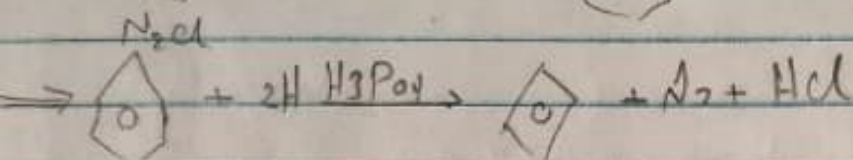 N2Cl
⇒ + 2H H3PO4 → + N2 + HCl